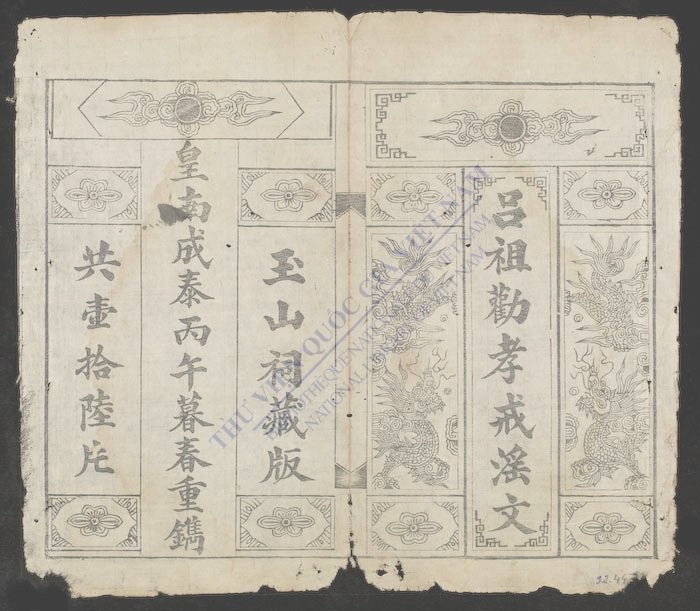 呂祖勸孝戒滛文
玉山祠藏版
皇南成泰丙午暮春重鐫
共壹拾陸片
THƯ VIỆN QUỐC GIA VIỆT NAM
BIBLIOTHEQUE NATIONALE DU VIETNAM
NATIONAL LIBRARY OF VIETNAM